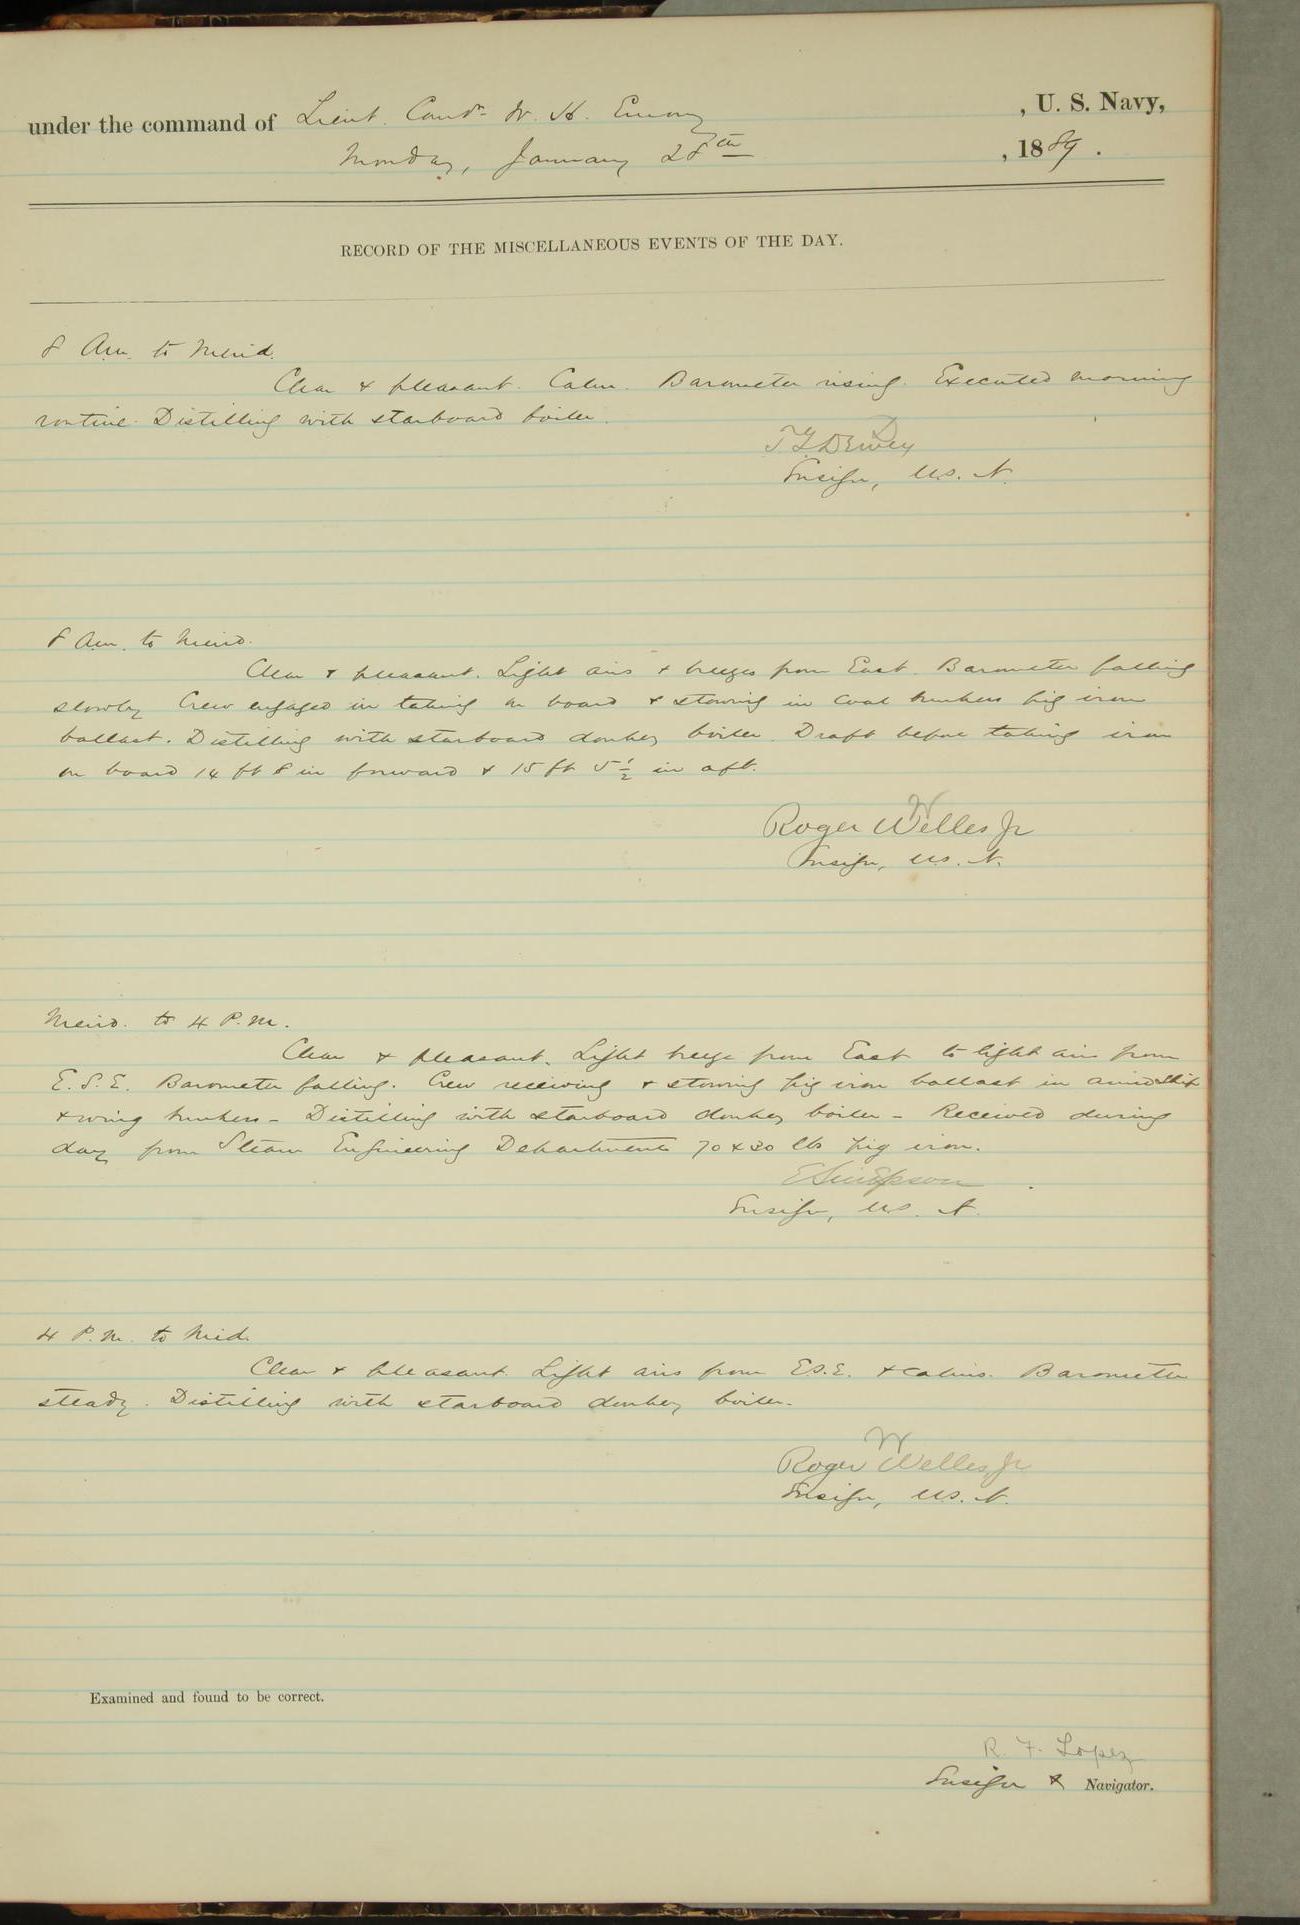 under the command of Lieut. Comdr W. H. Emory, U. S. Navy,
Monday, January 28th, 1889.
RECORD OF THE MISCELLANEOUS EVENTS OF THE DAY.
8 Am. to Merid.
Clear & pleasant. Calm. Barometer rising. Executed morning
routine. Distilling with starboard boiler.
T G Dewey
Ensign, U.S.N.
8 Am. to Merid.
Clear & pleasant. Light airs & breezes from East. Barometer falling
slowly Crew engaged in taking on board & stowing in coal bunkers pig iron
ballast. Distilling with starboard donkey boiler. Draft before taking iron
on board 14 ft 8 in forward & 15 ft 5 1/2 in aft.
Roger Welles Jr
Ensign, U.S.N.
Merid. to 4 P.M.
Clear & pleasant. Light breeze from East to light airs from
E.S.E. Barometer falling. Crew receiving & stowing pig iron ballast in amidship
& wing bunkers - Distilling with starboard donkey boiler - Received during
day from Steam Engineering Department 70480 lbs pig iron.
E Simpson
Ensign, U.S.N.
4 P.M. to Mid.
Clear & pleasant. Light airs from E.S.E. & calms. Barometer
steady. Distilling with starboard donkey boiler.
Roger Welles, Jr
Ensign, U.S.N.
Examined and found to be correct.
R. F. Lopez
Ensign & Navigator.